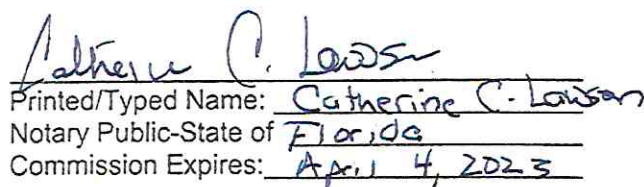 Catherine C. Lawson
Printed/Typed Name: Catherine C. Lawson
Notary Public-State of Florida
Commission Expires: April 4, 2023